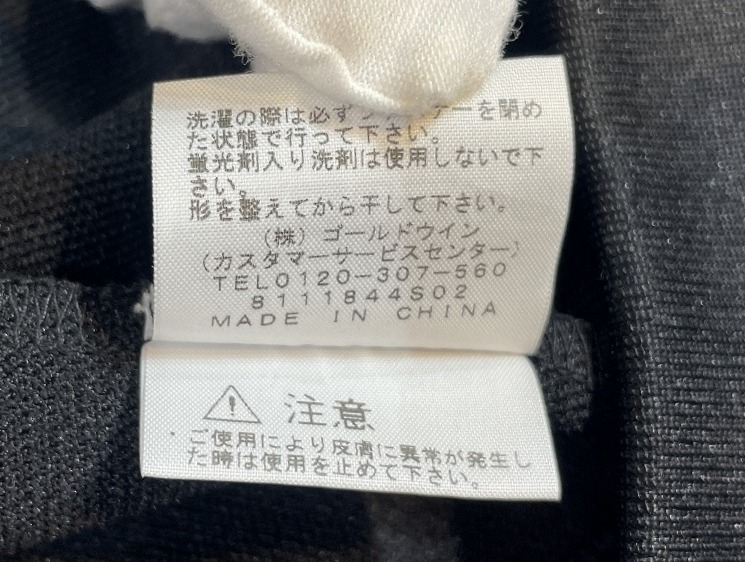 洗濯の際は必ずファスナーを閉め
た状態で行って下さい。
蛍光剤入り洗剤は使用しないで下
さい。
形を整えてから干して下さい。
(株) ゴールドウイン
(カスタマーサービスセンター)
TEL0120-307-560
8111844S02
MADE IN CHINA
注意
ご使用により皮膚に異常が発生し
た時は使用を止めて下さい。